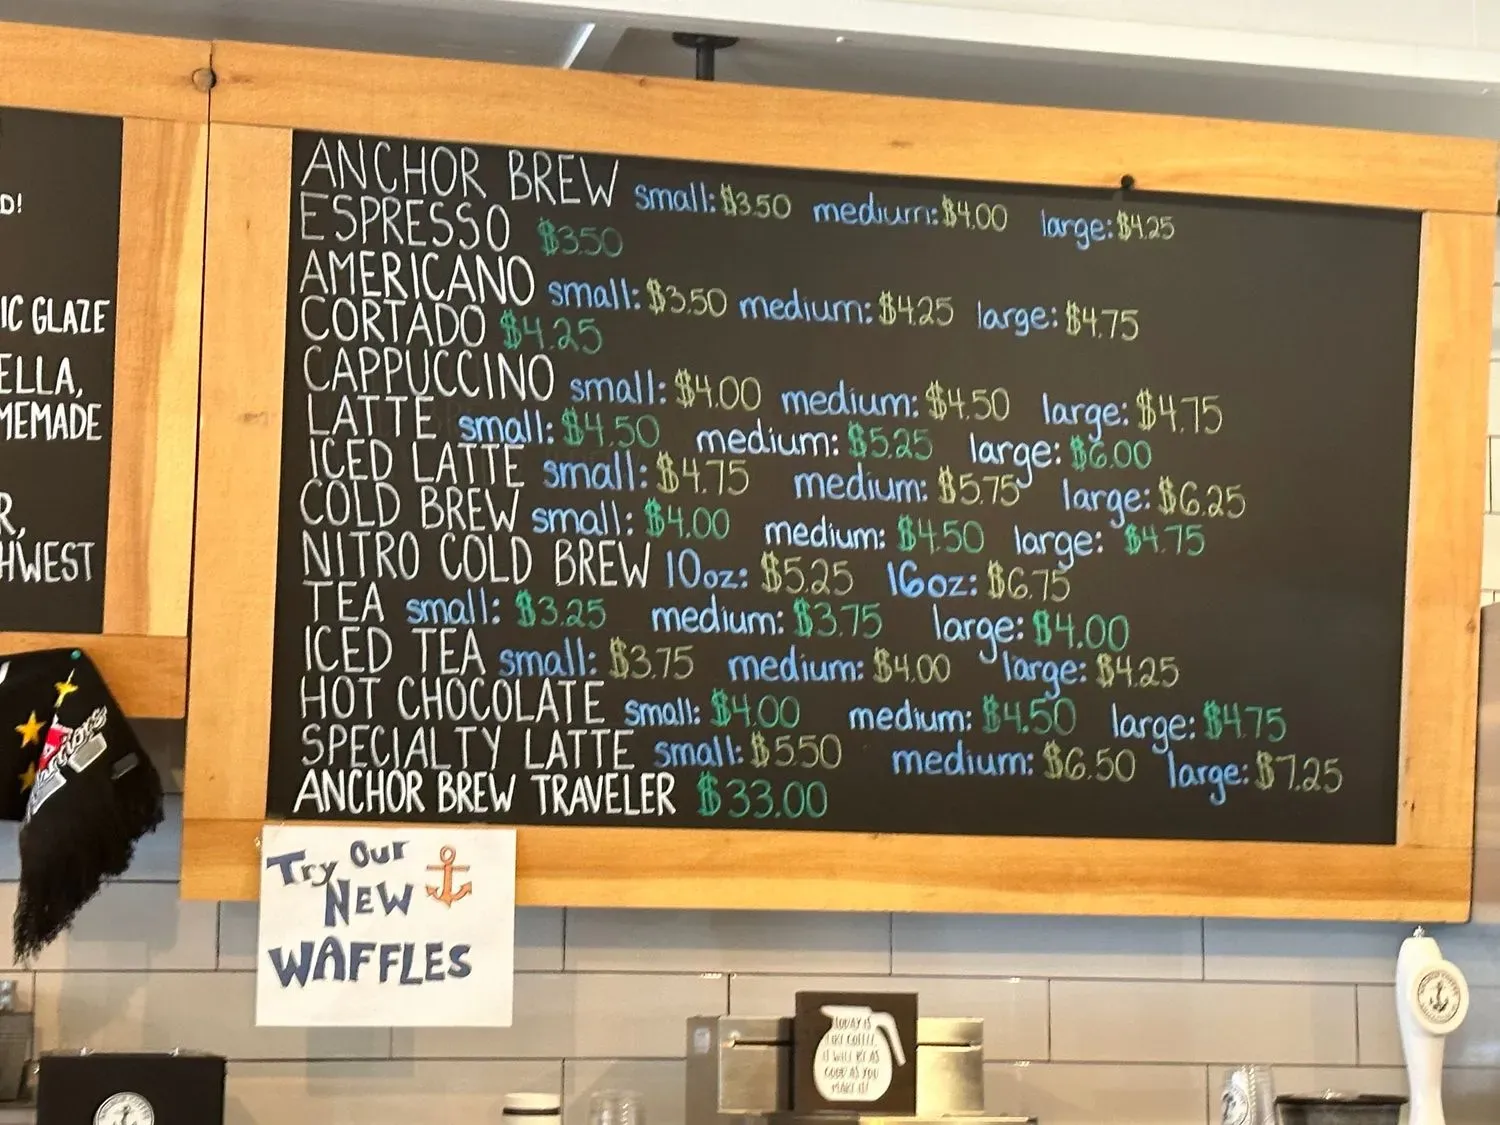 D!
IC GLAZE
ELLA,
MEMADE
R,
HWEST
ANCHOR BREW small: $3.50 medium: $4.00 large: $4.25
ESPRESSO $3.50
AMERICANO small: $3.50 medium: $4.25 large: $4.75
CORTADO $4.25
CAPPUCCINO small: $4.00 medium: $4.50 large: $4.75
LATTE small: $4.50 medium: $5.25 large: $6.00
ICED LATTE small: $4.75 medium: $5.75 large: $6.25
COLD BREW small: $4.00 medium: $4.50 large: $4.75
NITRO COLD BREW 10oz: $5.25 16oz: $6.75
TEA small: $3.25 medium: $3.75 large: $4.00
ICED TEA small: $3.75 medium: $4.00 large: $4.25
HOT CHOCOLATE small: $4.00 medium: $4.50 large: $4.75
SPECIALTY LATTE small: $5.50 medium: $6.50 large: $7.25
ANCHOR BREW TRAVELER $33.00
Try Our
NEW
WAFFLES
TODAY IS
LIKE COFFEE,
IT WILL BE AS
GOOD AS YOU
MAKE IT!